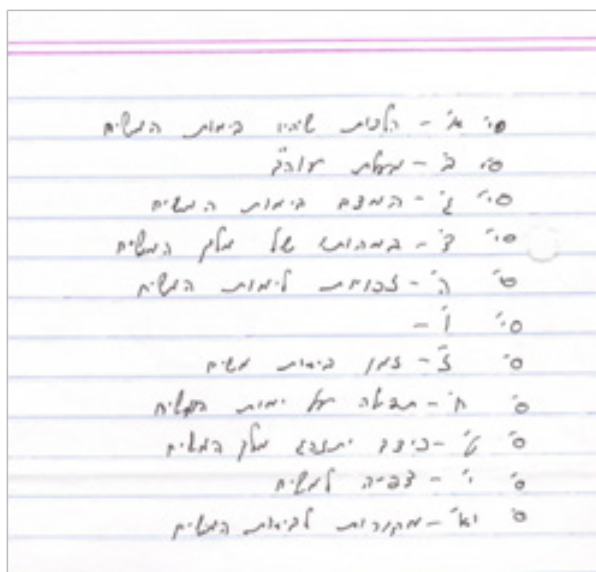 סי' א' - הלכות שיהיו בימות המשיח
סי' ב' - מעלת עוה"ב
סי' ג' - המצב בימות המשיח
סי' ד' - במהותו של מלך המשיח
סי' ה' - זכויות לימות המשיח
סי' ו' -
סי' ז' - זמן ביאת משיח
סי' ח' - תפלה על ימות המשיח
סי' ט' - כיצד יתנהג מלך המשיח
סי' י' - צפיה למשיח
סי' יא' - מקורות לביאת המשיח